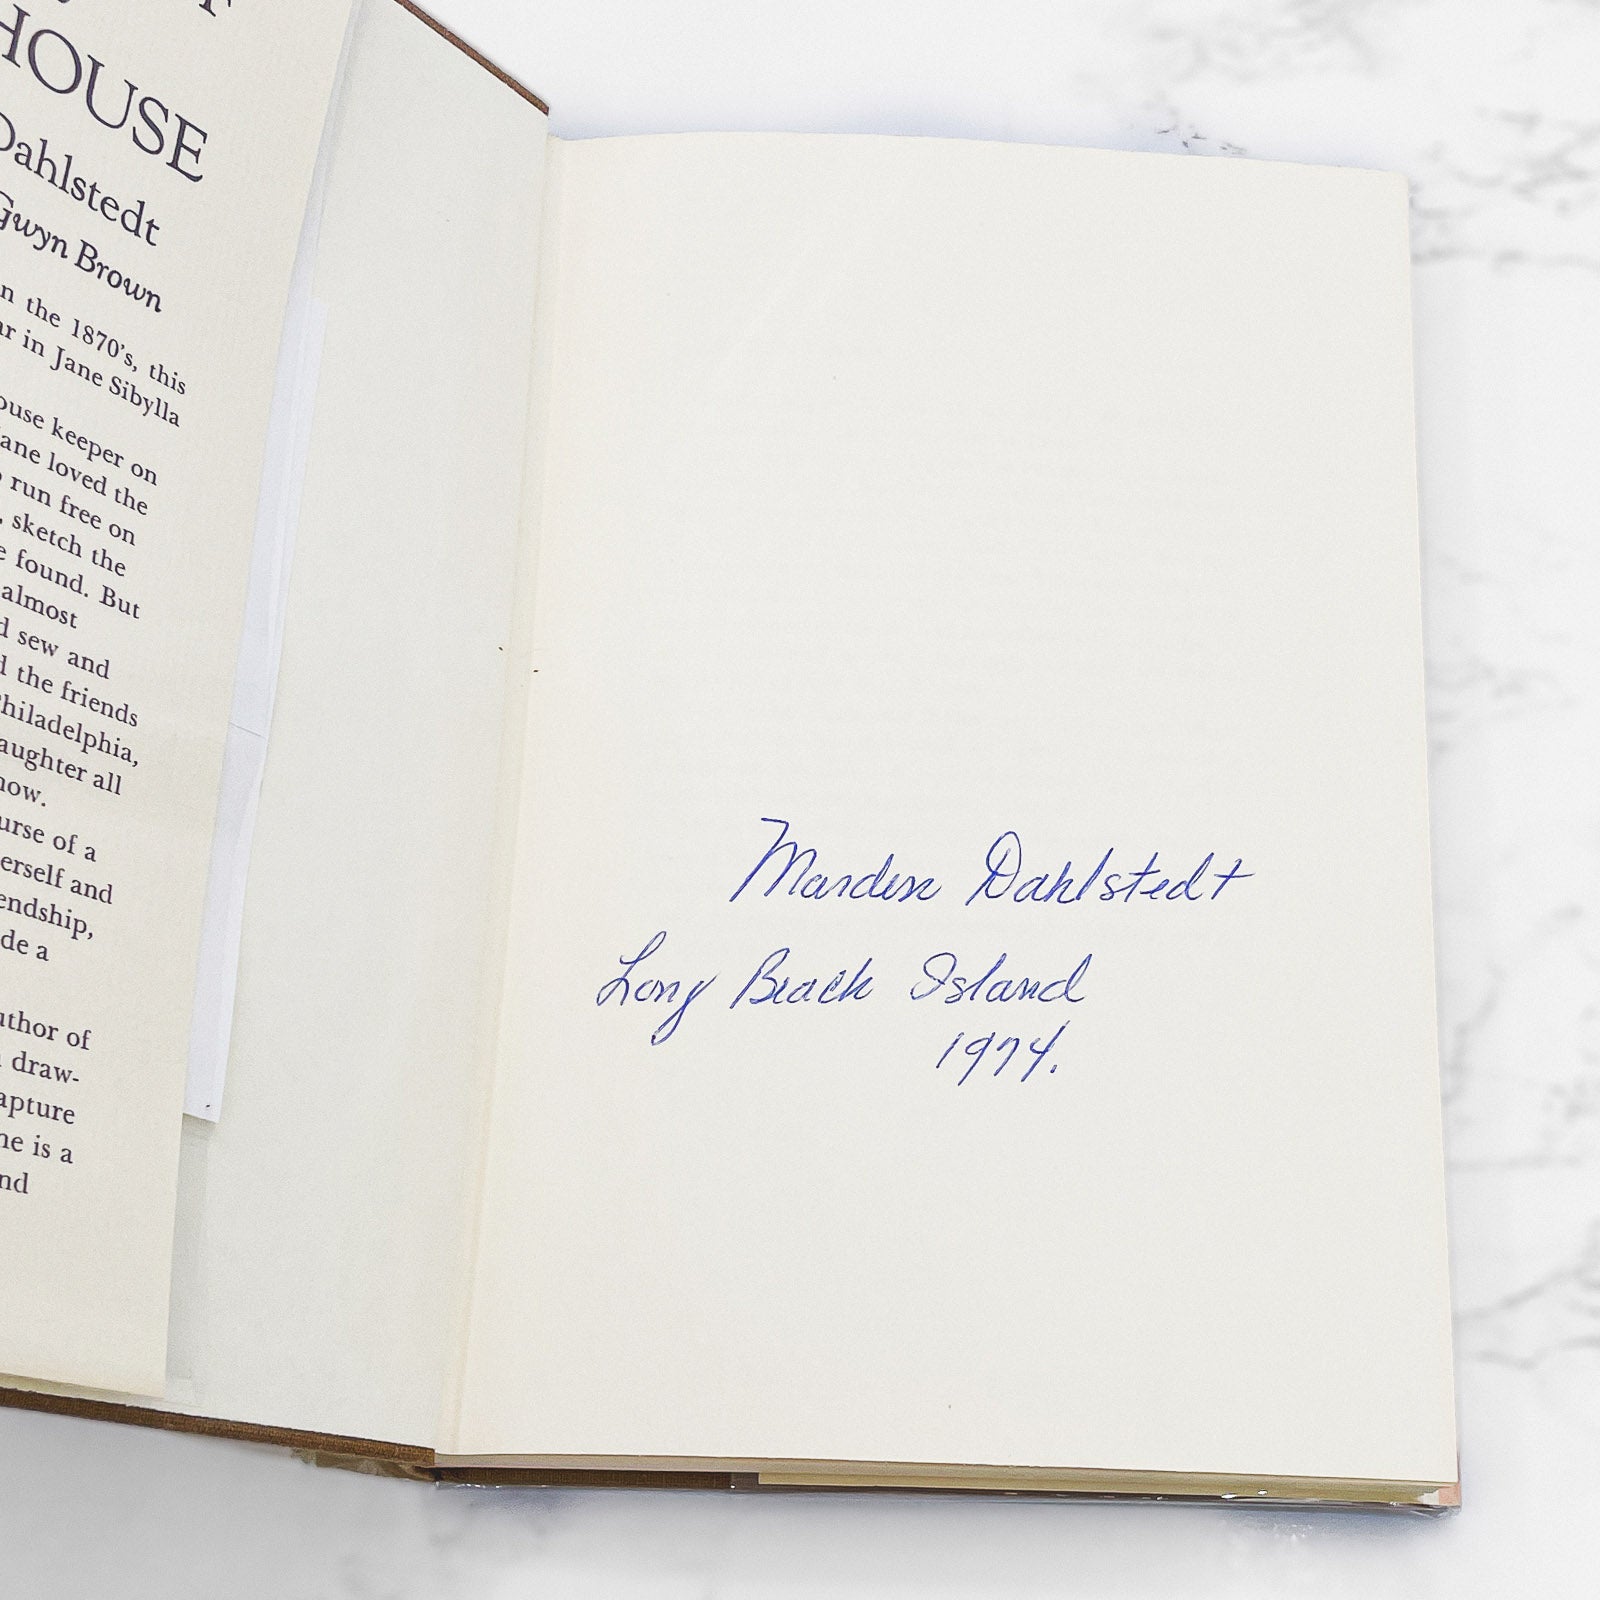 HOUSE
Dahlstedt
Gwyn Brown
in the 1870's, this
in Jane Sibylla
keeper on
Jane loved the
run free on
, sketch the
found. But
almost
sew and
the friends
Philadelphia,
daughter all
of a
herself and
friendship,
a
author of
draw-
is a
Marden Dahlstedt
Long Beach Island
1974.